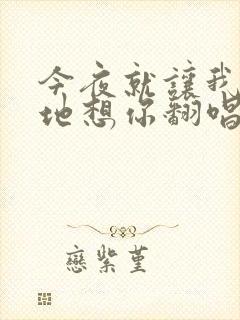 今夜就讓我
地想你翻唱
戀紫堇